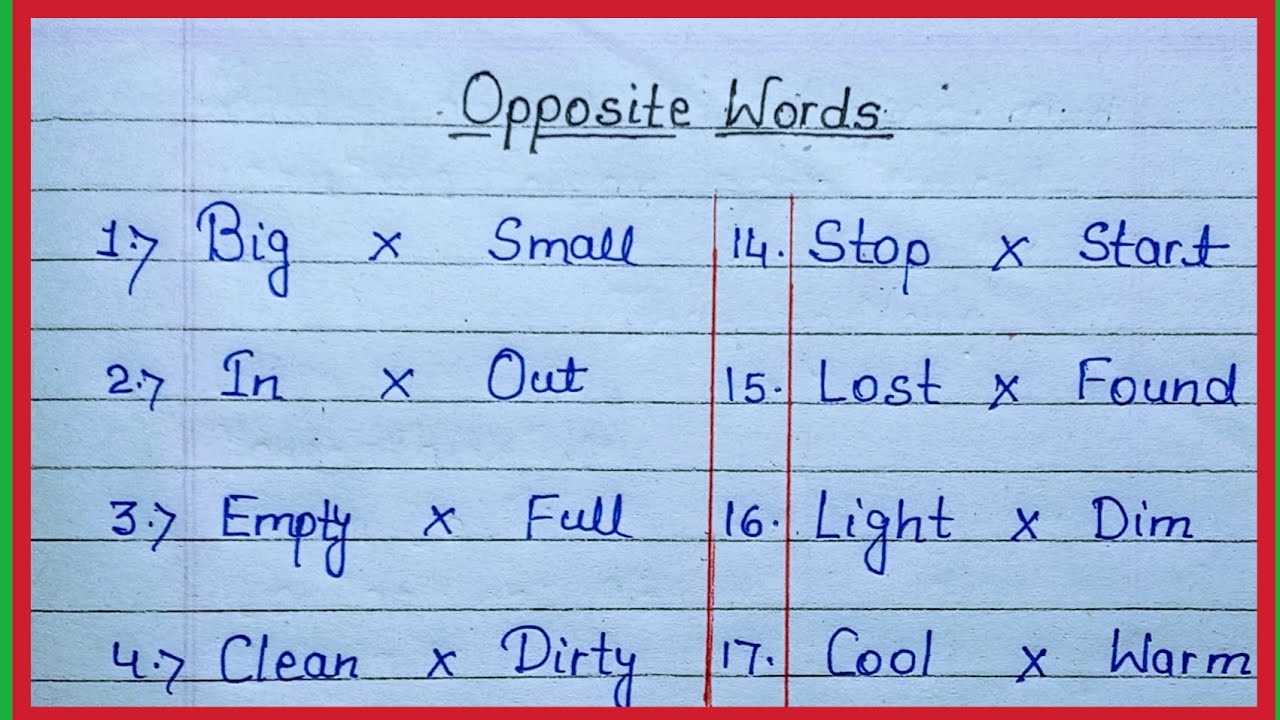 Opposite Words
1.> Big x Small
2.> In x Out
3.> Empty x Full
4.> Clean x Dirty
14. Stop x Start
15. Lost x Found
16. Light x Dim
17. Cool x Warm